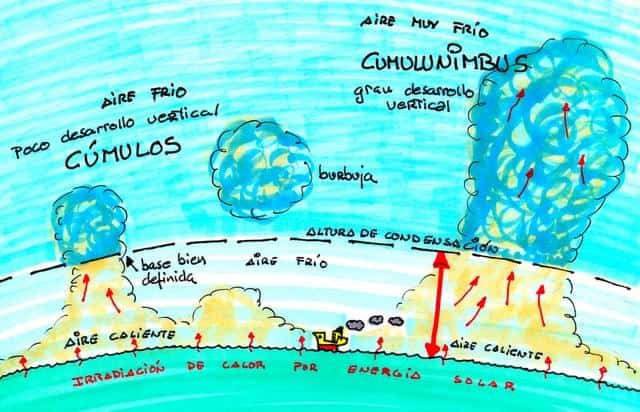 AIRE MUY FRÍO
CUMULUNIMBUS
gran desarrollo
vertical
AIRE FRÍO
Poco desarrollo vertical
CÚMULOS
burbuja
ALTURA DE CONDENSACIÓN
base bien
definida
AIRE FRÍO
AIRE CALIENTE
AIRE CALIENTE
IRRADIACIÓN DE CALOR POR ENERGÍA SOLAR